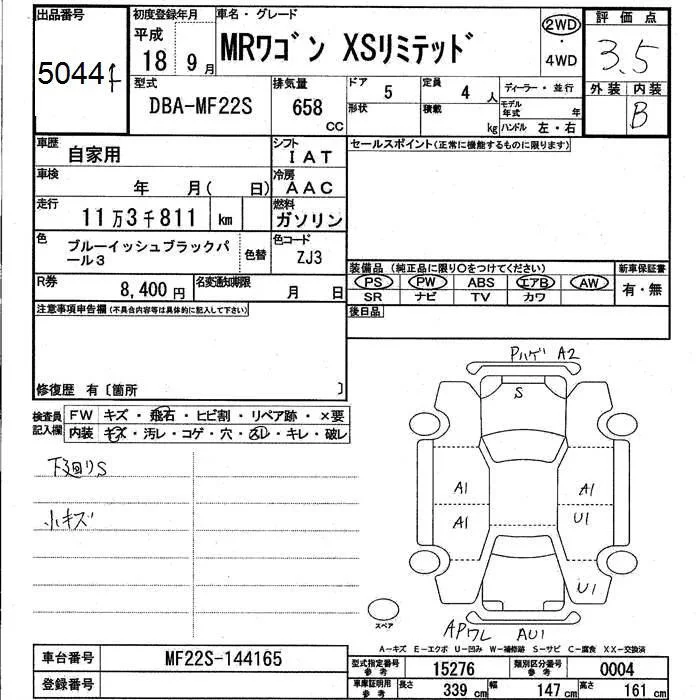 出品番号
50441
初度登録年月
平成
18 9月
車名・グレード
MRワゴン XSリミテッド
2WD
・
4WD
評価点
3.5
外装 内装
B
型式
DBA-MF22S
排気量
658
CC
ドア
5
定員
4 人
ディーラー・並行
形状
積載
kg
モデル年式 年
ハンドル 左・右
車歴
自家用
シフト
IAT
セールスポイント(正常に機能するものに限ります)
車検
年 月( 日)
冷房
AAC
走行
11万3千811 km
燃料
ガソリン
色
ブルーイッシュブラックパ
ール3
色替
色コード
ZJ3
装備品(純正品に限り○をつけてください)
新車保証書
PS PW ABS エアB AW
有・無
SR ナビ TV カワ
R券
8,400 円
名変通知期限
月 日
後日品
注意事項申告欄(不具合内容等は具体的に記入して下さい)
修復歴 有〔箇所 〕
検査員
記入欄
FW キズ・飛石・ヒビ割・リペア跡・×要
内装 キズ・汚レ・コゲ・穴・スレ・キレ・破レ
下廻りS
小キズ
Pハゲ A2
S
A1 A1
A1 U1
U1
スペア
APワレ AU1
A-キズ E-エクボ U-凹み W-補修跡 S-サビ C-腐食 XX-交換済
車台番号
MF22S-144165
型式指定番号
参考
15276
類別区分番号
参考
0004
登録番号
車庫証明用
参考
長さ 339 cm 幅 147 cm 高さ 161 cm